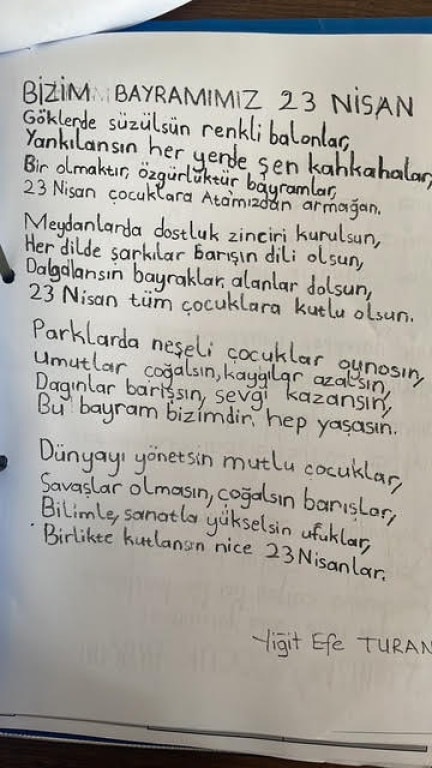 BİZİM BAYRAMIMIZ 23 NİSAN
Göklerde süzülsün renkli balonlar,
Yankılansın her yerde şen kahkahalar,
Bir olmaktır, özgürlüktür bayramlar,
23 Nisan çocuklara Atamızdan armağan.
Meydanlarda dostluk zinciri kurulsun,
Her dilde şarkılar barışın dili olsun,
Dalgalansın bayraklar, alanlar dolsun,
23 Nisan tüm çocuklara kutlu olsun.
Parklarda neşeli çocuklar oynasın,
Umutlar çoğalsın, kaygılar azalsın,
Dargınlar barışsın, sevgi kazansın,
Bu bayram bizimdir, hep yaşasın.
Dünyayı yönetsin mutlu çocuklar,
Savaşlar olmasın, çoğalsın barışlar,
Bilimle, sanatla yükselsin ufuklar,
Birlikte kutlansın nice 23 Nisanlar.
Yiğit Efe TURAN